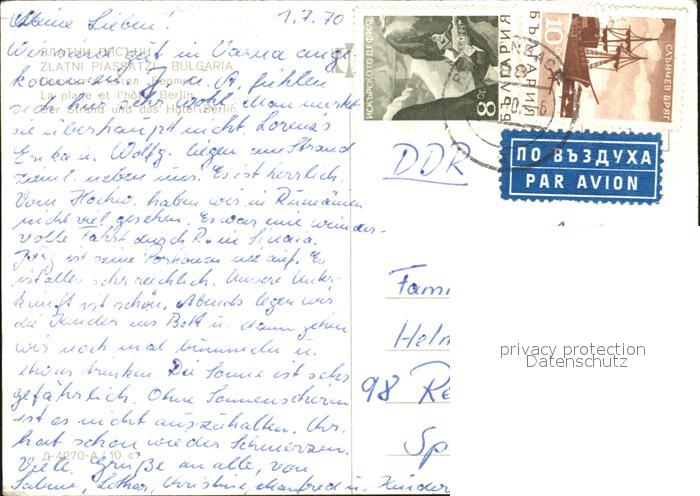 Meine Lieben! 1.7.70
Wir sind gut in Varna ange-
kommen.
sich hier sehr wohl. Man merkt
sie überhaupt nicht. Lorenz
Erika u. Wolfg. liegen am Strand
neben uns. Es ist herrlich.
Vom Hochw. haben wir in Rumänien
nicht viel gesehen. Es war eine wunder-
volle Fahrt durch R. in Sinaia.
Jörg ist seine Portionen nie auf. Es
ist alles sehr reichlich. Unsere Unter-
kunft ist schön. Abends legen wir
die Kinder ins Bett u. dann gehen
wir noch mal bummeln u.
etwas trinken. Die Sonne ist sehr
gefährlich. Ohne Sonnenschirm
ist es nicht auszuhalten. Chr.
hat schon wieder Schmerzen.
Viele Grüße an alle, von
Sabine, Lothar, Christine, Manfred u. Kinder
ZLATNI PIASSATZI BULGARIA
La plage et l'hôtel Berlin
Der Strand und das Hotel Berlin
Д-4270-А 10 ст
ИСКЪРСКОТО ДЕФИЛЕ
8 ст
БЪЛГАРИЯ
БЪЛГАРИЯ
10
СЛЪНЧЕВ БРЯГ
ПО ВЪЗДУХА
PAR AVION
DDR
Fami
Helm
98 Re
Sp
privacy protection
Datenschutz